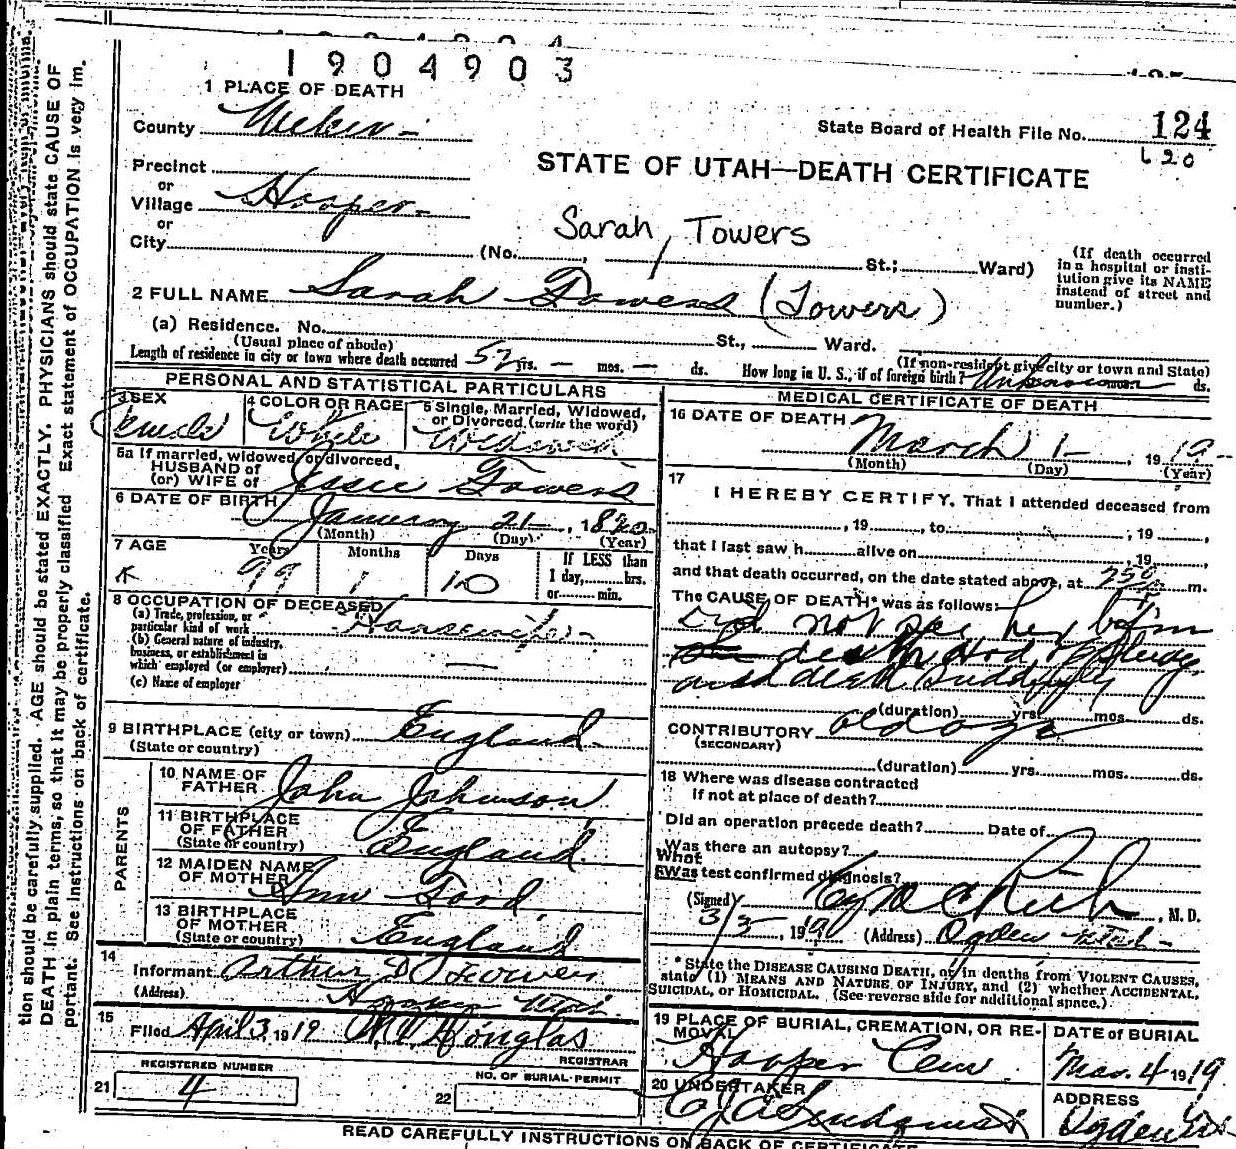 1904903
1 PLACE OF DEATH
County Weber
State Board of Health File No. 124
620
STATE OF UTAH—DEATH CERTIFICATE
Precinct
or
Village Hooper
or
Sarah Towers
City (No. , St.; Ward)
(If death occurred
in a hospital or insti-
tution give its NAME
instead of street and
number.)
2 FULL NAME Sarah Towers (Towers)
(a) Residence. No. St., Ward.
(Usual place of abode) (If non-resident give city or town and State)
Length of residence in city or town where death occurred 52 yrs. — mos. — ds. How long in U. S., if of foreign birth? Unknown ds.
PERSONAL AND STATISTICAL PARTICULARS
3 SEX
Female
4 COLOR OR RACE
White
5 Single, Married, Widowed,
or Divorced. (write the word)
Widowed
5a If married, widowed or divorced,
HUSBAND of
(or) WIFE of Jessie Towers
6 DATE OF BIRTH January 21, 1820
(Month) (Day) (Year)
7 AGE Years Months Days If LESS than
99 1 10 1 day, hrs.
or min.
8 OCCUPATION OF DECEASED
(a) Trade, profession, or
particular kind of work Housewife
(b) General nature of industry,
business, or establishment in
which employed (or employer) —
(c) Name of employer
9 BIRTHPLACE (city or town) England
(State or country)
PARENTS
10 NAME OF
FATHER John Johnson
11 BIRTHPLACE
OF FATHER
(State or country) England
12 MAIDEN NAME
OF MOTHER Ann
13 BIRTHPLACE
OF MOTHER
(State or country) England
14
Informant Arthur D Towers
(Address) Hooper Utah
15
Filed April 3 1919 Douglas
REGISTRAR
REGISTERED NUMBER
21 4
NO. OF BURIAL PERMIT
22
MEDICAL CERTIFICATE OF DEATH
16 DATE OF DEATH
March 1 1919
(Month) (Day) (Year)
17
I HEREBY CERTIFY, That I attended deceased from
, 19 , to , 19 ,
that I last saw h alive on , 19 ,
and that death occurred, on the date stated above, at m.
The CAUSE OF DEATH* was as follows:
Did not see her before
death Had
and death Suddenly
(duration) yrs. mos. ds.
CONTRIBUTORY old age
(SECONDARY)
(duration) yrs. mos. ds.
18 Where was disease contracted
if not at place of death?
Did an operation precede death? Date of
Was there an autopsy?
What
Was test confirmed diagnosis?
(Signed) Rich, M. D.
3/3, 1919 (Address) Ogden Utah
* State the DISEASE CAUSING DEATH, or in deaths from VIOLENT CAUSES,
state (1) MEANS AND NATURE OF INJURY, and (2) whether ACCIDENTAL,
SUICIDAL, or HOMICIDAL. (See reverse side for additional space.)
19 PLACE OF BURIAL, CREMATION, OR RE-
MOVAL
Hooper Cem
DATE OF BURIAL
Mar. 4 1919
20 UNDERTAKER
Lindquist
ADDRESS
Ogden
READ CAREFULLY INSTRUCTIONS ON BACK OF CERTIFICATE
tion should be carefully supplied. AGE should be stated EXACTLY. PHYSICIANS should state CAUSE OF
DEATH in plain terms, so that it may be properly classified. Exact statement of OCCUPATION is very im-
portant. See instructions on back of certificate.